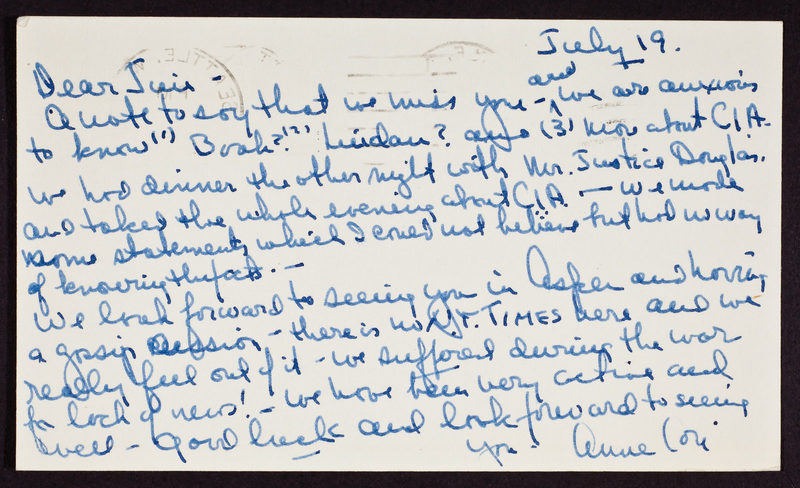 July 19.
Dear Jim -
A note to say that we miss you - and we are anxious
to know (1) Book? (2) Lindan? and (3) more about CIA -
We had dinner the other night with Mr. Justice Douglas.
and talked the whole evening about CIA - we made
some statements which I could not believe but had no way
of knowing the facts. -
We look forward to seeing you in Aspen and having
a gossip session - there is no N.Y. TIMES here and we
really feel out of it - we suffered during the war
for lack of news! - We have been very active and
well - Good luck and look forward to seeing
you - Anne